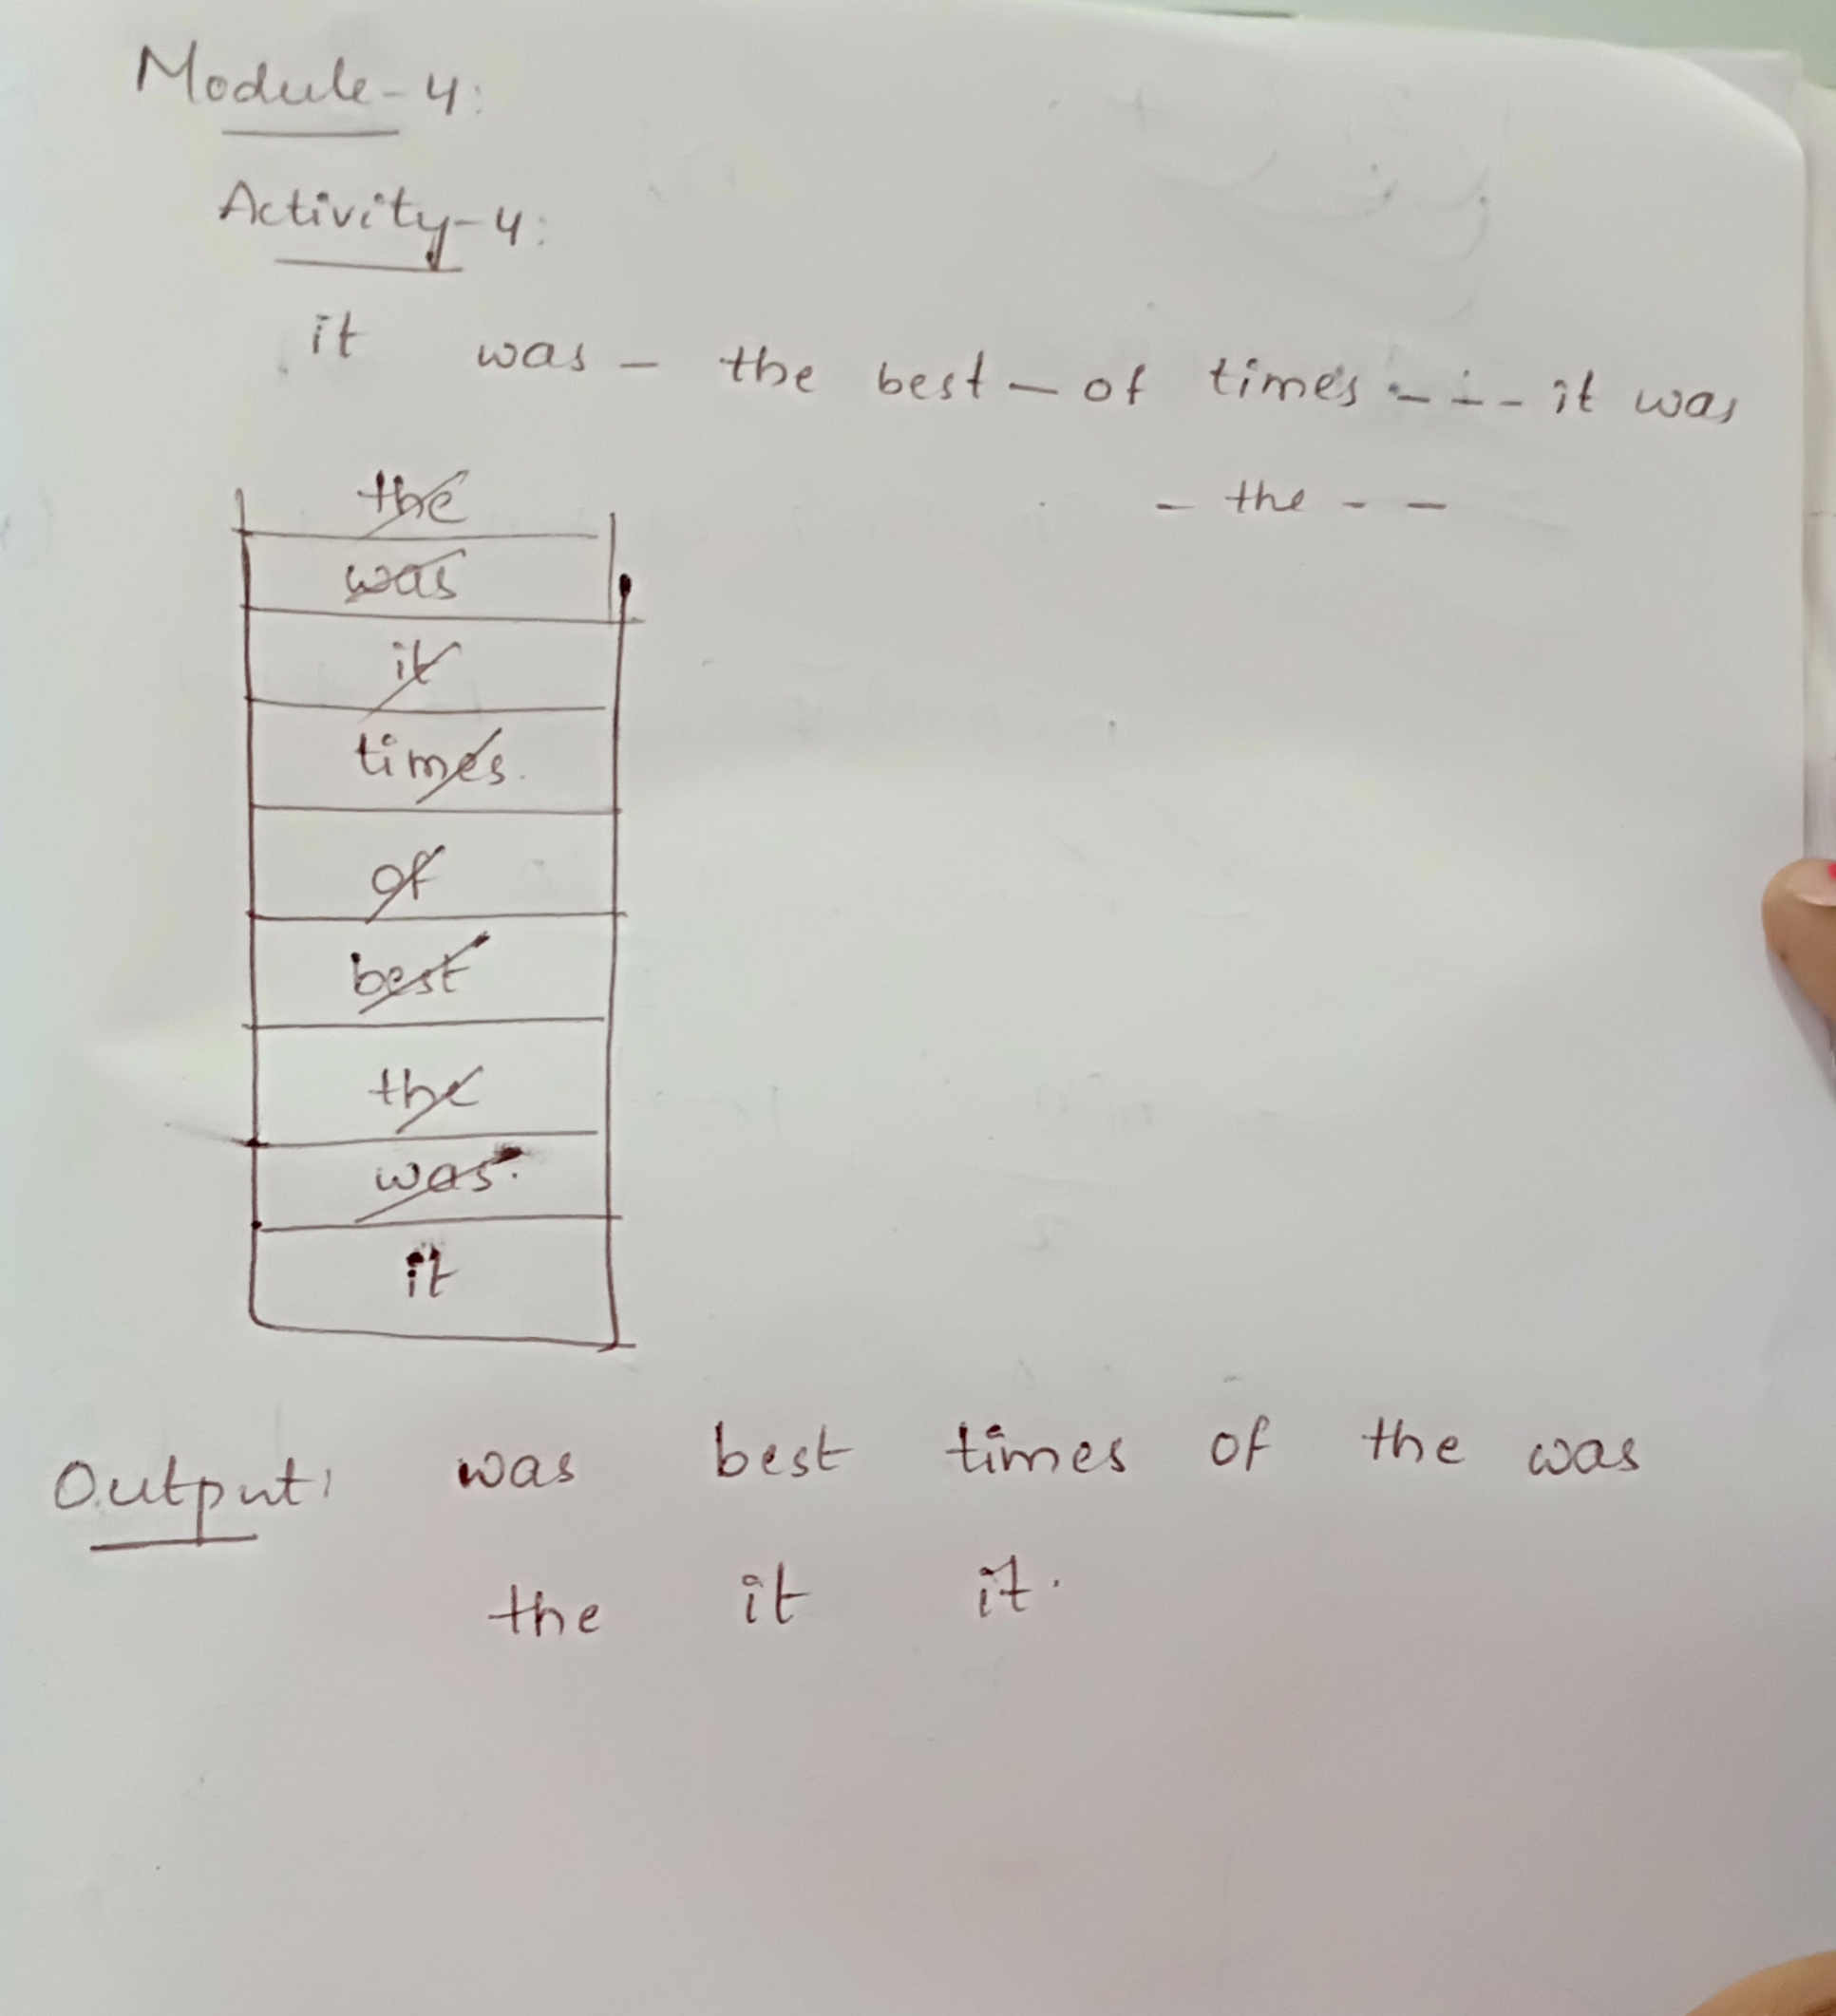 Module-4:
Activity-4:
it was - the best - of times - - - it was
- the - -
the
was
it
times.
of
best
the
was.
it
Output: was best times of the was
the it it.